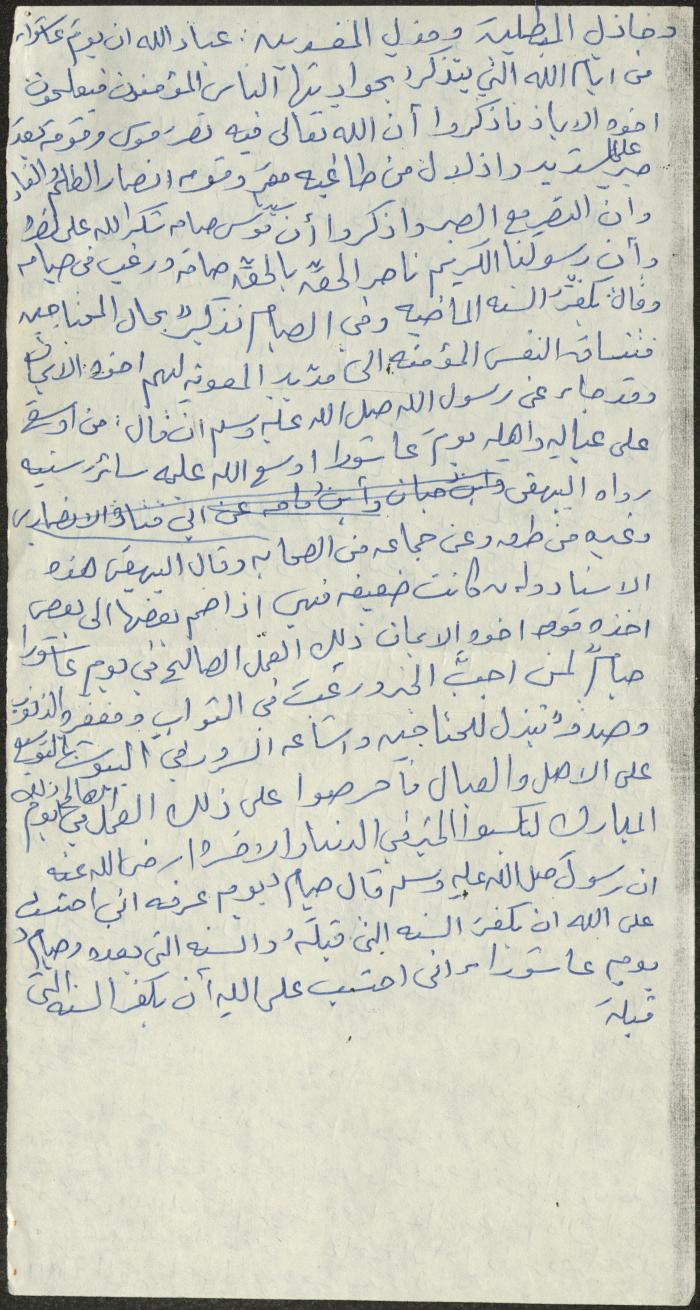 وخاذل المبطلين ومخزي المفسدين: عباد الله ان يوم عاشوراء
من ايام الله التي يتذكر بحوادثها الناس المؤمنون فيعلمون
اخوه الايمان فاذكروا أن الله تعالى فيه نصر موسى وقومه بعد
صبر على شديد واذلال من طاغيه مصر وقومه انصار الظلم والفساد
وان النصر مع الصبر واذكروا أن سيدنا موسى صامه شكرا لله على نصره
وأن رسولنا الكريم ناصر الحق بالحق صامه ورغب في صيامه
وقال: يكفر السنه الماضيه وفي الصيام تذكير بحال المحتاجين
فتنساق النفس المؤمنه الى مد يد المعونه ليهم اخوه الايمان
وقد جاء عن رسول الله صلى الله عليه وسلم أنه قال: من اوسع
على عياله واهله يوم عاشورا اوسع الله عليه سائر سنيه
رواه البيهقي وابن حبان وأبن ماجه عن ابي قتادة الانصاري
وغيره من طرق وعن جماعه من الصحابه وقال البيهقي هذه
الاسناد وان كانت ضعيفه فهي اذا ضم بعضها الى بعض
اخذه قوه اخوه الايمان ذلك العمل الصالح في يوم عاشورا
صيام لمن احب الخير ورغب في الثواب ومغفره الذنوب
وصدقه تبذل للمحتاجين واشاعه السرور في البيوت بالتوسع
على الاهل والعيال فأحرصوا على ذلك العمل الصالح في ذلك اليوم
المبارك لتكسبوا الخير في الدنيا والاخرة رضي الله عنه
ان رسول صلى الله عليه وسلم قال صيام يوم عرفه اني احتسب
على الله ان يكفر السنه التي قبله والسنه التي بعده وصيام
يوم عاشوراء اني احتسب على الله أن يكفر السنه التي
قبله